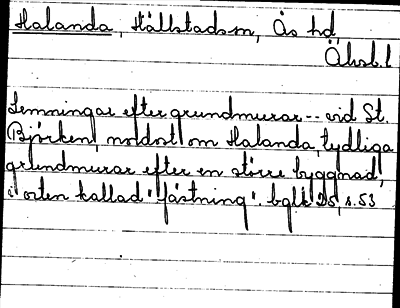 Halanda, Hällstads sn, Ås hd,
Äbsb.l
Lemningar efter grundmurar -- vid St.
Björken, nordost om Halanda, tydliga
grundmurar efter en större byggnad,
i orten kallad "fästning". bglk 25, s. 53